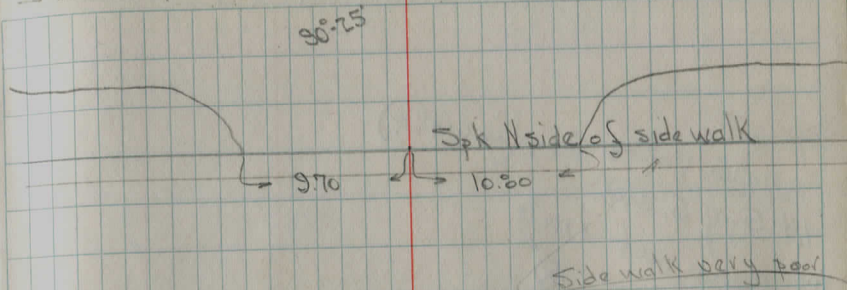 90°-25'
Spk N side of sidewalk
9.70 10.80
Side walk very poor